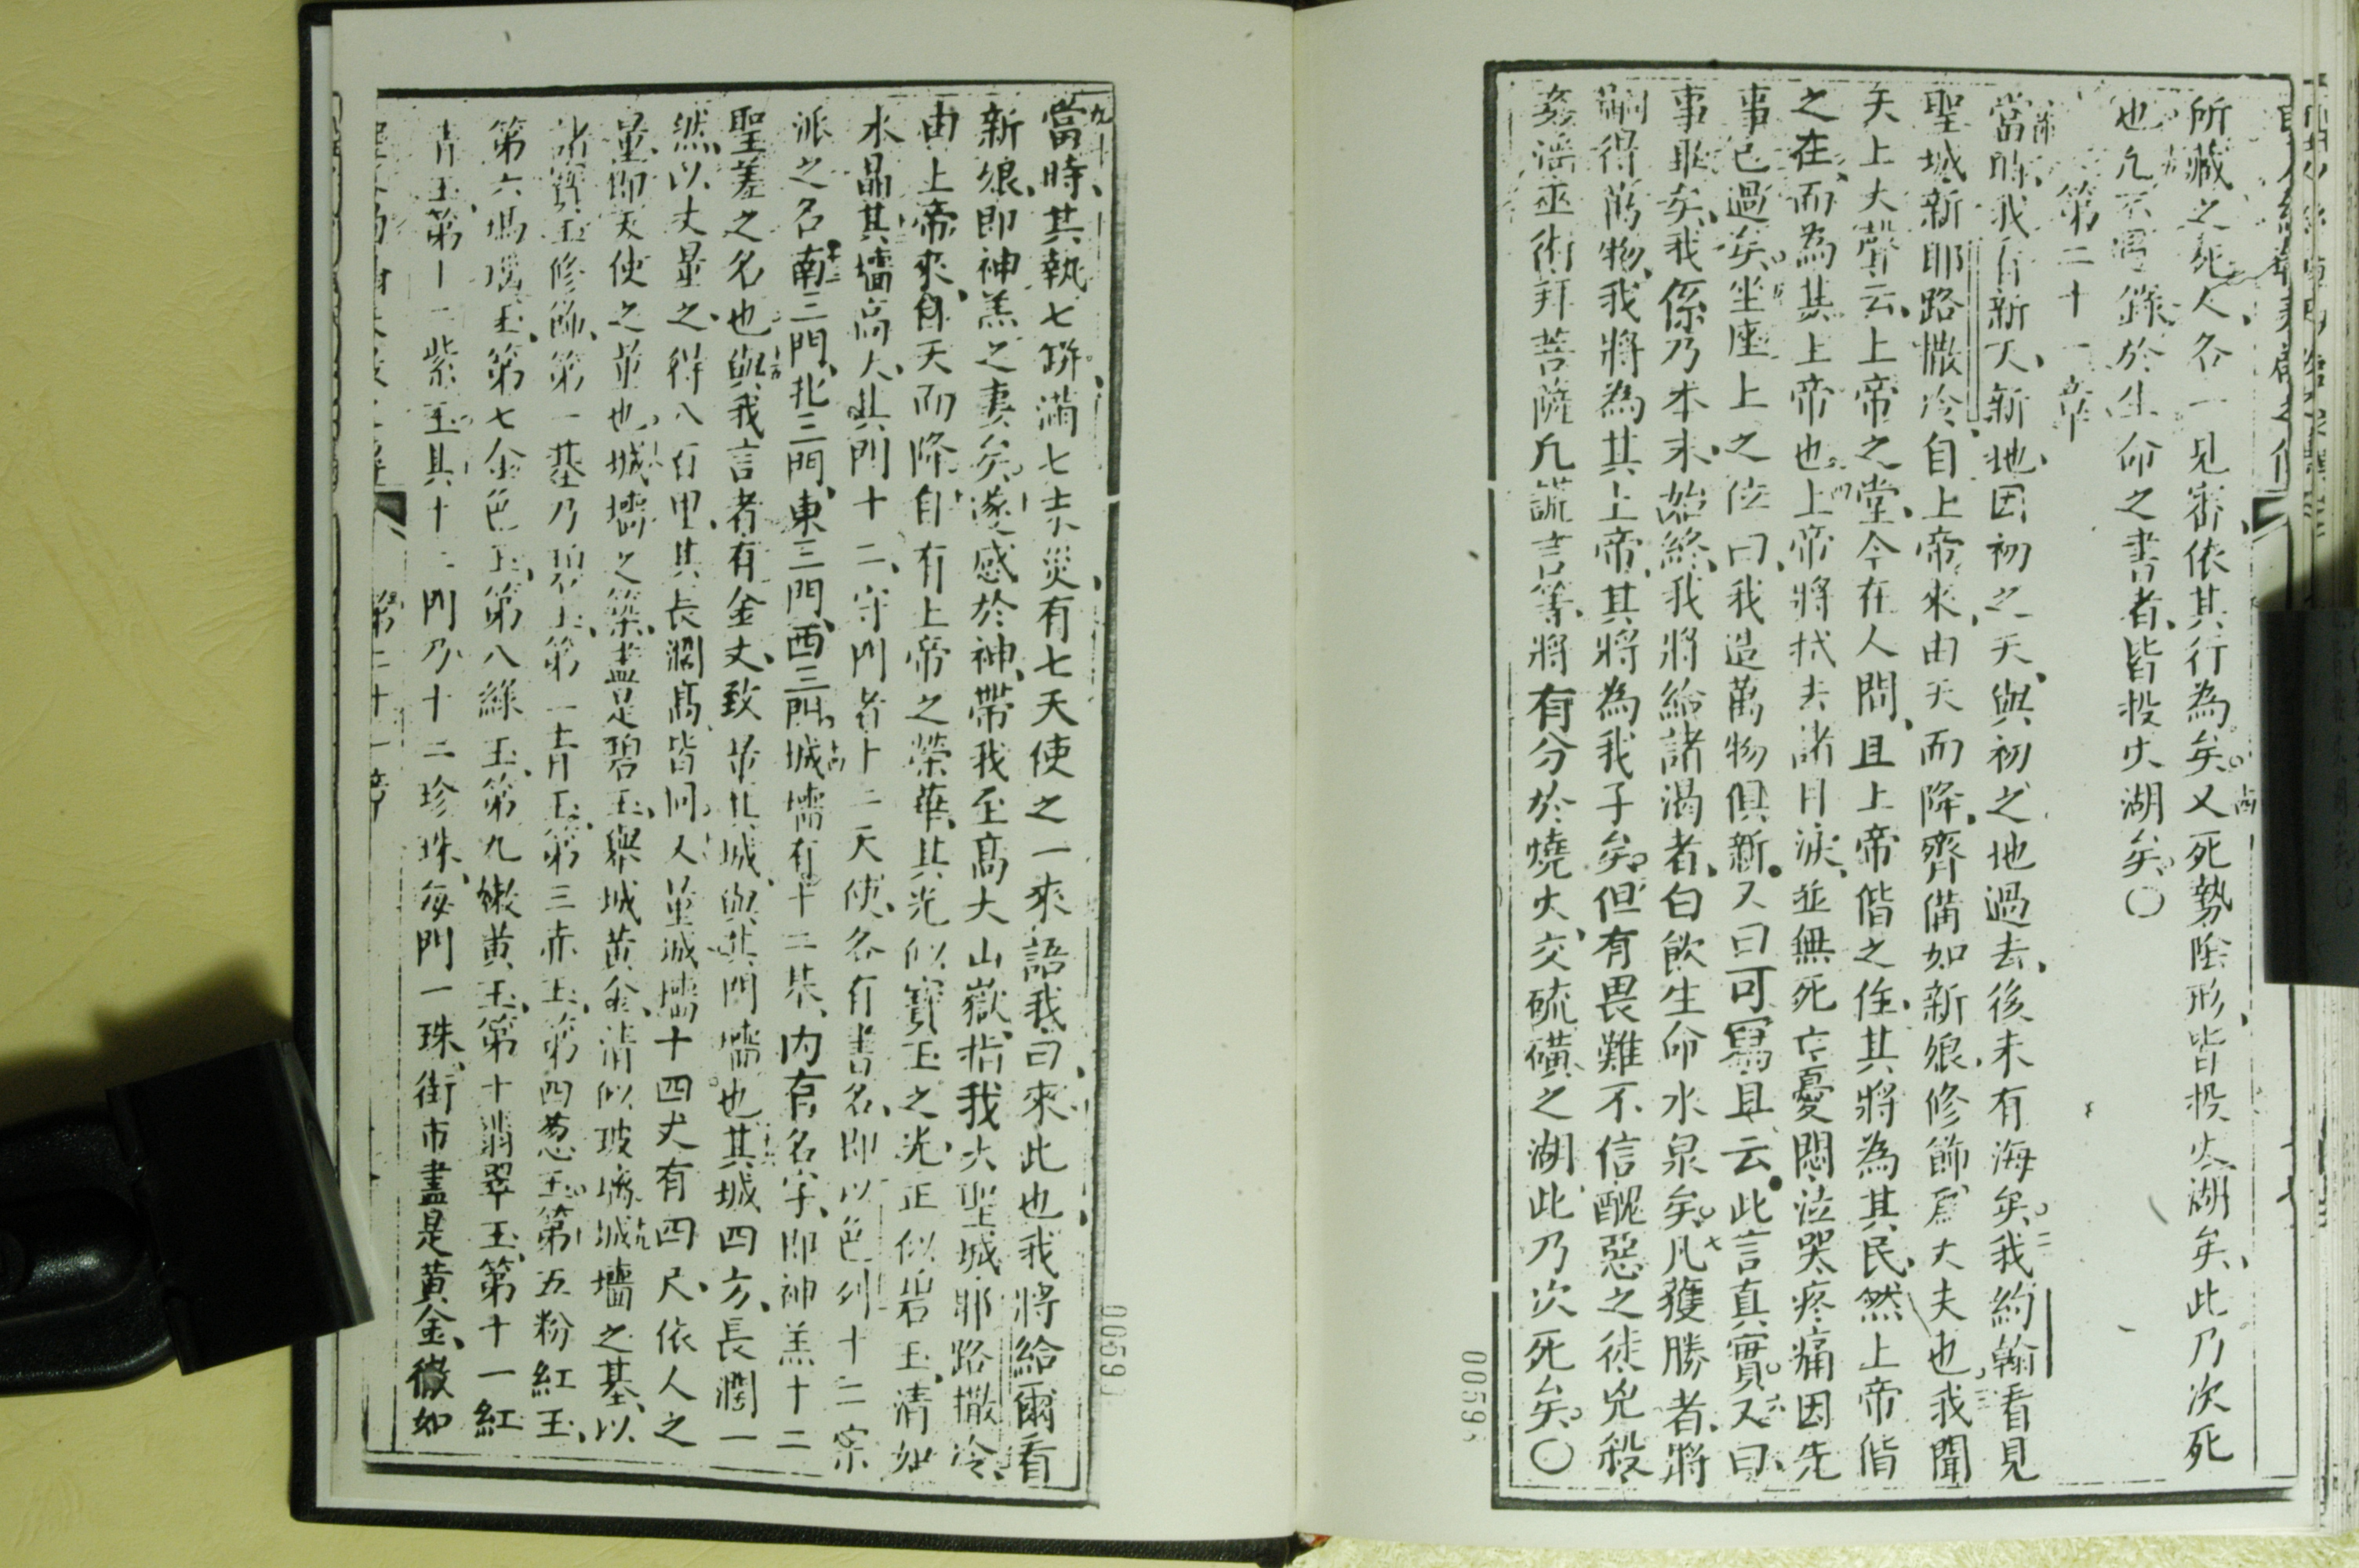 所藏之死人各一見審依其行為矣又死勢陰形皆投火湖矣此乃次死
也凡不冩錄於生命之書者皆投火湖矣○
第二十一章
當時我看新天新地因初之天與初之地過去後未有海矣我約翰看見
聖城新耶路撒冷自上帝來由天而降齊備如新娘修飾為丈夫也我聞
天上大聲云上帝之堂今在人間且上帝偕之住其將為其民然上帝偕
之在而為其上帝也上帝將拭去諸目淚並無死亡憂悶泣哭疼痛因先
事已過矣坐座上之位曰我造萬物俱新又曰可寫且云此言真實又曰
事畢矣我係乃本末始終我將給諸渴者白飲生命水泉矣凡獲勝者將
嗣得萬物我將為其上帝其將為我子矣但有畏難不信醜惡之徒兇殺
姦淫巫術拜菩薩凡謊言等將有分於燒火交硫磺之湖此乃次死矣○
當時其執七缾滿七末災有七天使之一來語我曰來此也我將給爾看
新娘即神羔之妻矣遂感於神帶我至高大山嶽指我大聖城耶路撒冷
由上帝來自天而降自有上帝之榮華其光似寶玉之光正似碧玉清如
水晶其墻高大其門十二守門者十二天使各有書名即以色列十二宗
派之名南三門北三門東三門西三門城墻有十二基內有名字即神羔十二
聖差之名也與我言者有金丈致量其城與其門墻也其城四方長濶一
然以丈量之得八百里其長濶高皆同又量城墻十四丈有四尺依人之
量即天使之量也城墻之築盡是碧玉與城黃金清似玻璃城墻之基以
諸寶玉修飾第一基乃碧玉第二青玉第三赤玉第四葱玉第五粉紅玉
第六瑪瑙玉第七金色玉第八綠玉第九嫩黃玉第十翡翠玉第十一紅
青玉第十二紫玉其十二門乃十二珍珠每門一珠街市盡是黃金徹如
第二十一章